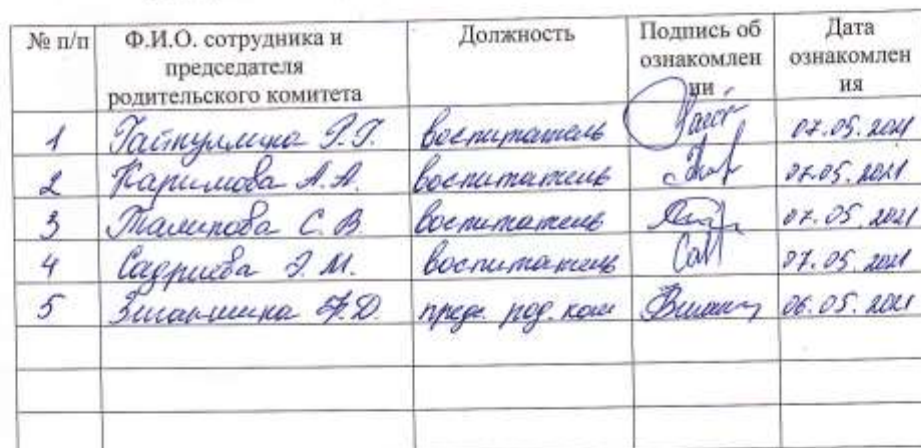 № п/п Ф.И.О. сотрудника и председателя родительского комитета Должность Подпись об ознакомлен ии Дата ознакомлен ия
1 Гайнуллина Г.Г. воспитатель 07.05.2021
2 Каримова А.А. воспитатель 07.05.2021
3 Талипова С.В. воспитатель 07.05.2021
4 Садриева Э.М. воспитатель 07.05.2021
5 пред. род. ком 06.05.2021